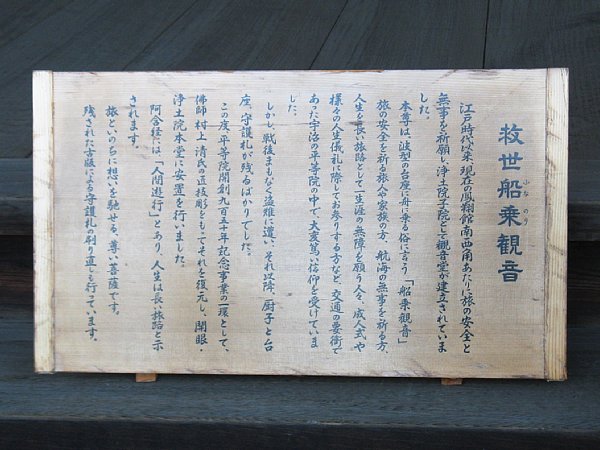 救世船乗観音
ふなのり
江戸時代以来、現在の鳳翔館南西角あたりに旅の安全と
無事を祈願し、浄土院子院として観音堂が建立されていま
した。
本尊は、波型の台座に舟に乗る俗に言う「船乗観音」
旅の安全を祈る旅人や家族の方、航海の無事を祈る方、
人生を長い旅路として一生涯の無障を願う人々、成人式や
様々の人生儀礼に際してお参りする方など、交通の要衝で
あった宇治の平等院の中で、大変篤い信仰を受けていま
した。
しかし、戦後まもなく盗難に遭い、それ以降、厨子と台
座、守護札が残るばかりでした。
この度、平等院開創九百五十年記念事業の一環として、
佛師村上清氏の道技彫をもってそれを復元し、開眼・
浄土院本堂に安置を行いました。
阿含経には「人間遊行」とあり、人生は長い旅路と示
されます。
旅といのちに想いを馳せる、尊い菩薩です。
残された古版による守護札の刷り直しも行っています。